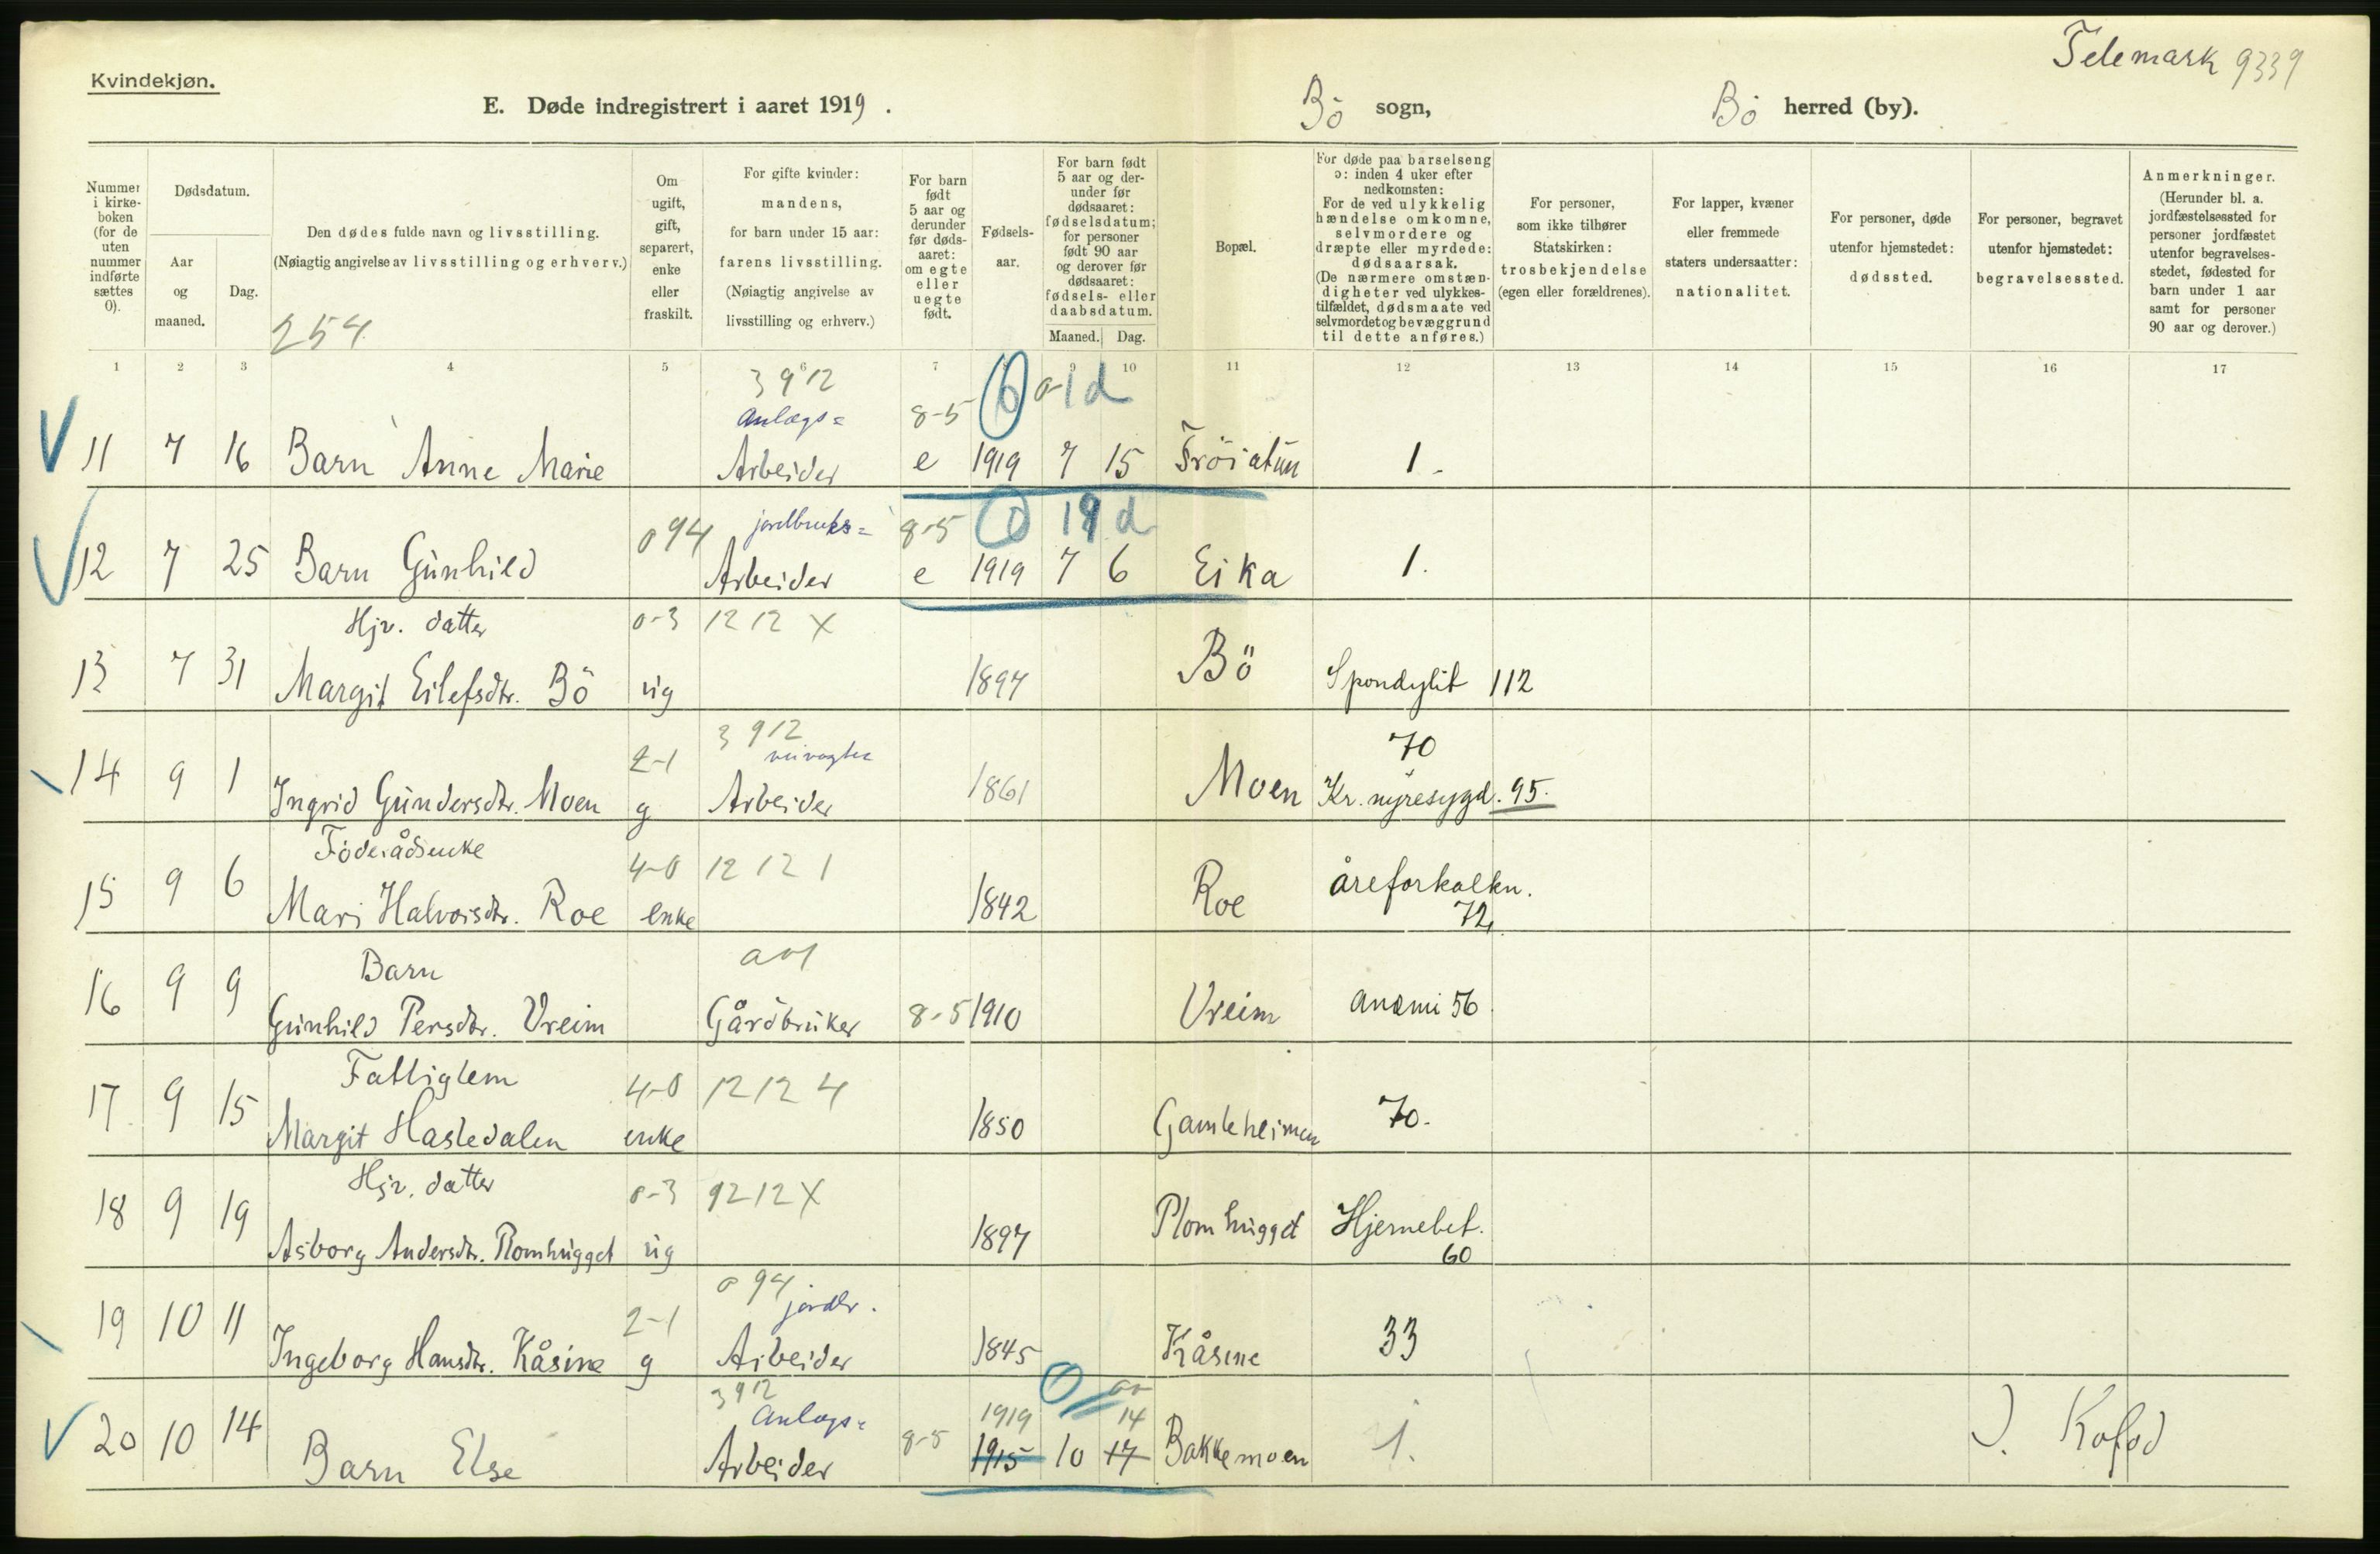 Telemark 9339
Kvindekjøn.
E. Døde indregistrert i aaret 1919. Bö sogn, Bö herred (by).
Nummer i kirkeboken (for de uten nummer indførte sættes 0).
Dødsdatum.
Aar og maaned.
Dag.
Den dødes fulde navn og livsstilling.
(Nøiagtig angivelse av livsstilling og erhverv.)
254
Om ugift, gift, separert, enke eller fraskilt.
For gifte kvinder: mandens, for barn under 15 aar: farens livsstilling. (Nøiagtig angivelse av livsstilling og erhverv.)
For barn født 5 aar og derunder før dødsaaret: om egte eller uegte født.
Fødselsaar.
For barn født 5 aar og derunder før dødsaaret: fødselsdatum; for personer født 90 aar og derover før dødsaaret: fødsels- eller daabsdatum.
Maaned. Dag.
Bopæl.
For døde paa barselseng ɔ: inden 4 uker efter nedkomsten: For de ved ulykkelig hændelse omkomne, selvmordere og dræpte eller myrdede: dødsaarsak. (De nærmere omstændigheter ved ulykkestilfældet, dødsmaate ved selvmordet og bevæggrund til dette anføres.)
For personer, som ikke tilhører Statskirken: trosbekjendelse (egen eller forældrenes).
For lapper, kvæner eller fremmede staters undersaatter: nationalitet.
For personer, døde utenfor hjemstedet: dødssted.
For personer, begravet utenfor hjemstedet: begravelsessted.
Anmerkninger. (Herunder bl. a. jordfæstelsessted for personer jordfæstet utenfor begravelsesstedet, fødested for barn under 1 aar samt for personer 90 aar og derover.)
1 2 3 4 5 6 7 9 10 11 12 13 14 15 16 17
3912 0 1 d
Anlægs= 8-5
11 7 16 Barn Anne Marie Arbeider e 1919 7 15 Fröiatun 1.
094 jordbruks= 8-5 0 19 d
12 7 25 Barn Gunhild Arbeider e 1919 7 6 Eika 1.
Hjv. datter 0-3 12 12 X
13 7 31 Margit Eilefsdtr. Bö ug 1897 Bö Spondylit 112
3 912 70
2-1 veivogter
14 9 1 Ingrid Gundersdtr. Moen g Arbeider 1861 Moen Kr. nyresygd. 95.
Föderådsenke 4-0 12 12 1
15 9 6 Mari Halvorsdtr. Roe enke 1842 Roe åreforkalkn.
72
Barn 001
16 9 9 Gunhild Persdtr. Vreim Gårdbruker 8-5 1910 Vreim anæmi 56
Fattiglem 4-0 12 12 4
17 9 15 Margit Hasledalen enke 1850 Gamleheimen 70.
Hjv. datter 0-3 92 12 X
18 9 19 Asborg Andersdtr. Plomhugget ug 1897 Plomhugget Hjernebet.
60
094
2-1 jordbr.
19 10 11 Ingeborg Hansdtr. Kåsine g Arbeider 1845 Kåsine 33
3912 0
Anlægs= 1919 14
20 10 14 Barn Else Arbeider 8-5 1915 10 17 Bakkemoen 1. J. Kofod